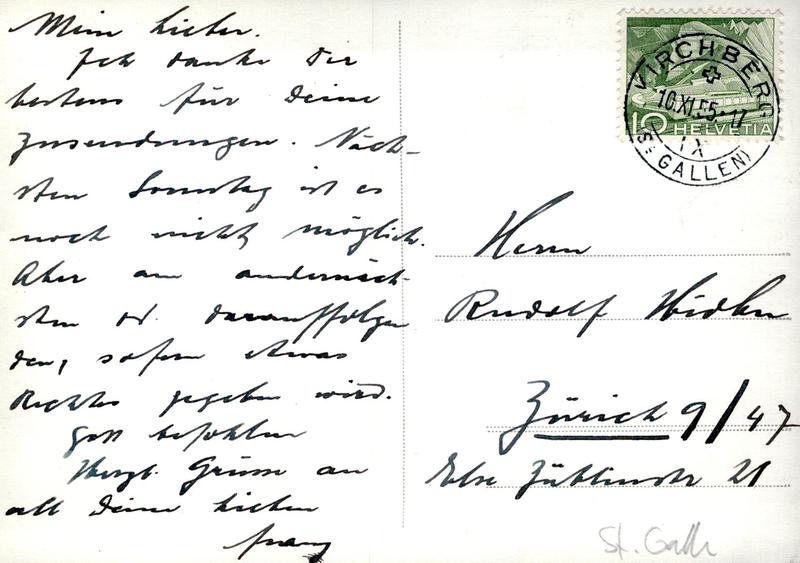 Mein Lieber.
Ich danke Dir
bestens für Deine
Zusendungen. Näch-
sten Sonntag ist es
noch nicht möglich.
Aber am andernäch-
sten od. darauffolgen
den, sofern etwas
Rechtes gegeben wird.
Gott befohlen
Herzl. Grüsse an
all Deine Lieben
Franz
KIRCHBERG
10.XI.55.-17
IX
(ST. GALLEN)
10 HELVETIA
Herrn
Rudolf
Zürich 9/47
Else Züblinstr 21
St. Galle